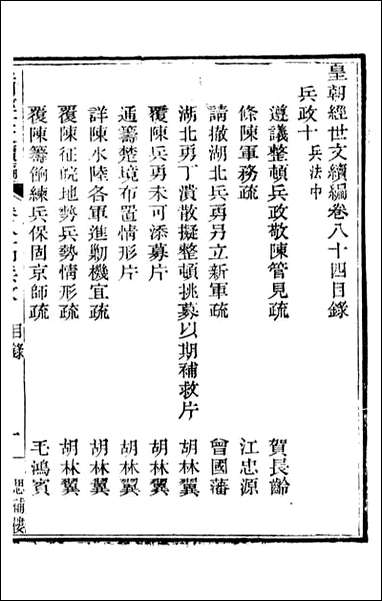 皇朝經世文續編卷八十四目錄
兵政十 兵法中
遵議整頓兵政敬陳管見疏 賀長齡
條陳軍務疏 江忠源
請撤湖北兵勇另立新軍疏 曾國藩
湖北勇丁潰散擬整頓挑募以期補救片 胡林翼
覆陳兵勇未可添募片 胡林翼
通籌楚境布置情形片 胡林翼
詳陳水陸各軍進勦機宜疏 胡林翼
覆陳征皖地勢兵勢情形疏 胡林翼
覆陳籌餉練兵保固京師疏 毛鴻賓
目錄 一 思補樓